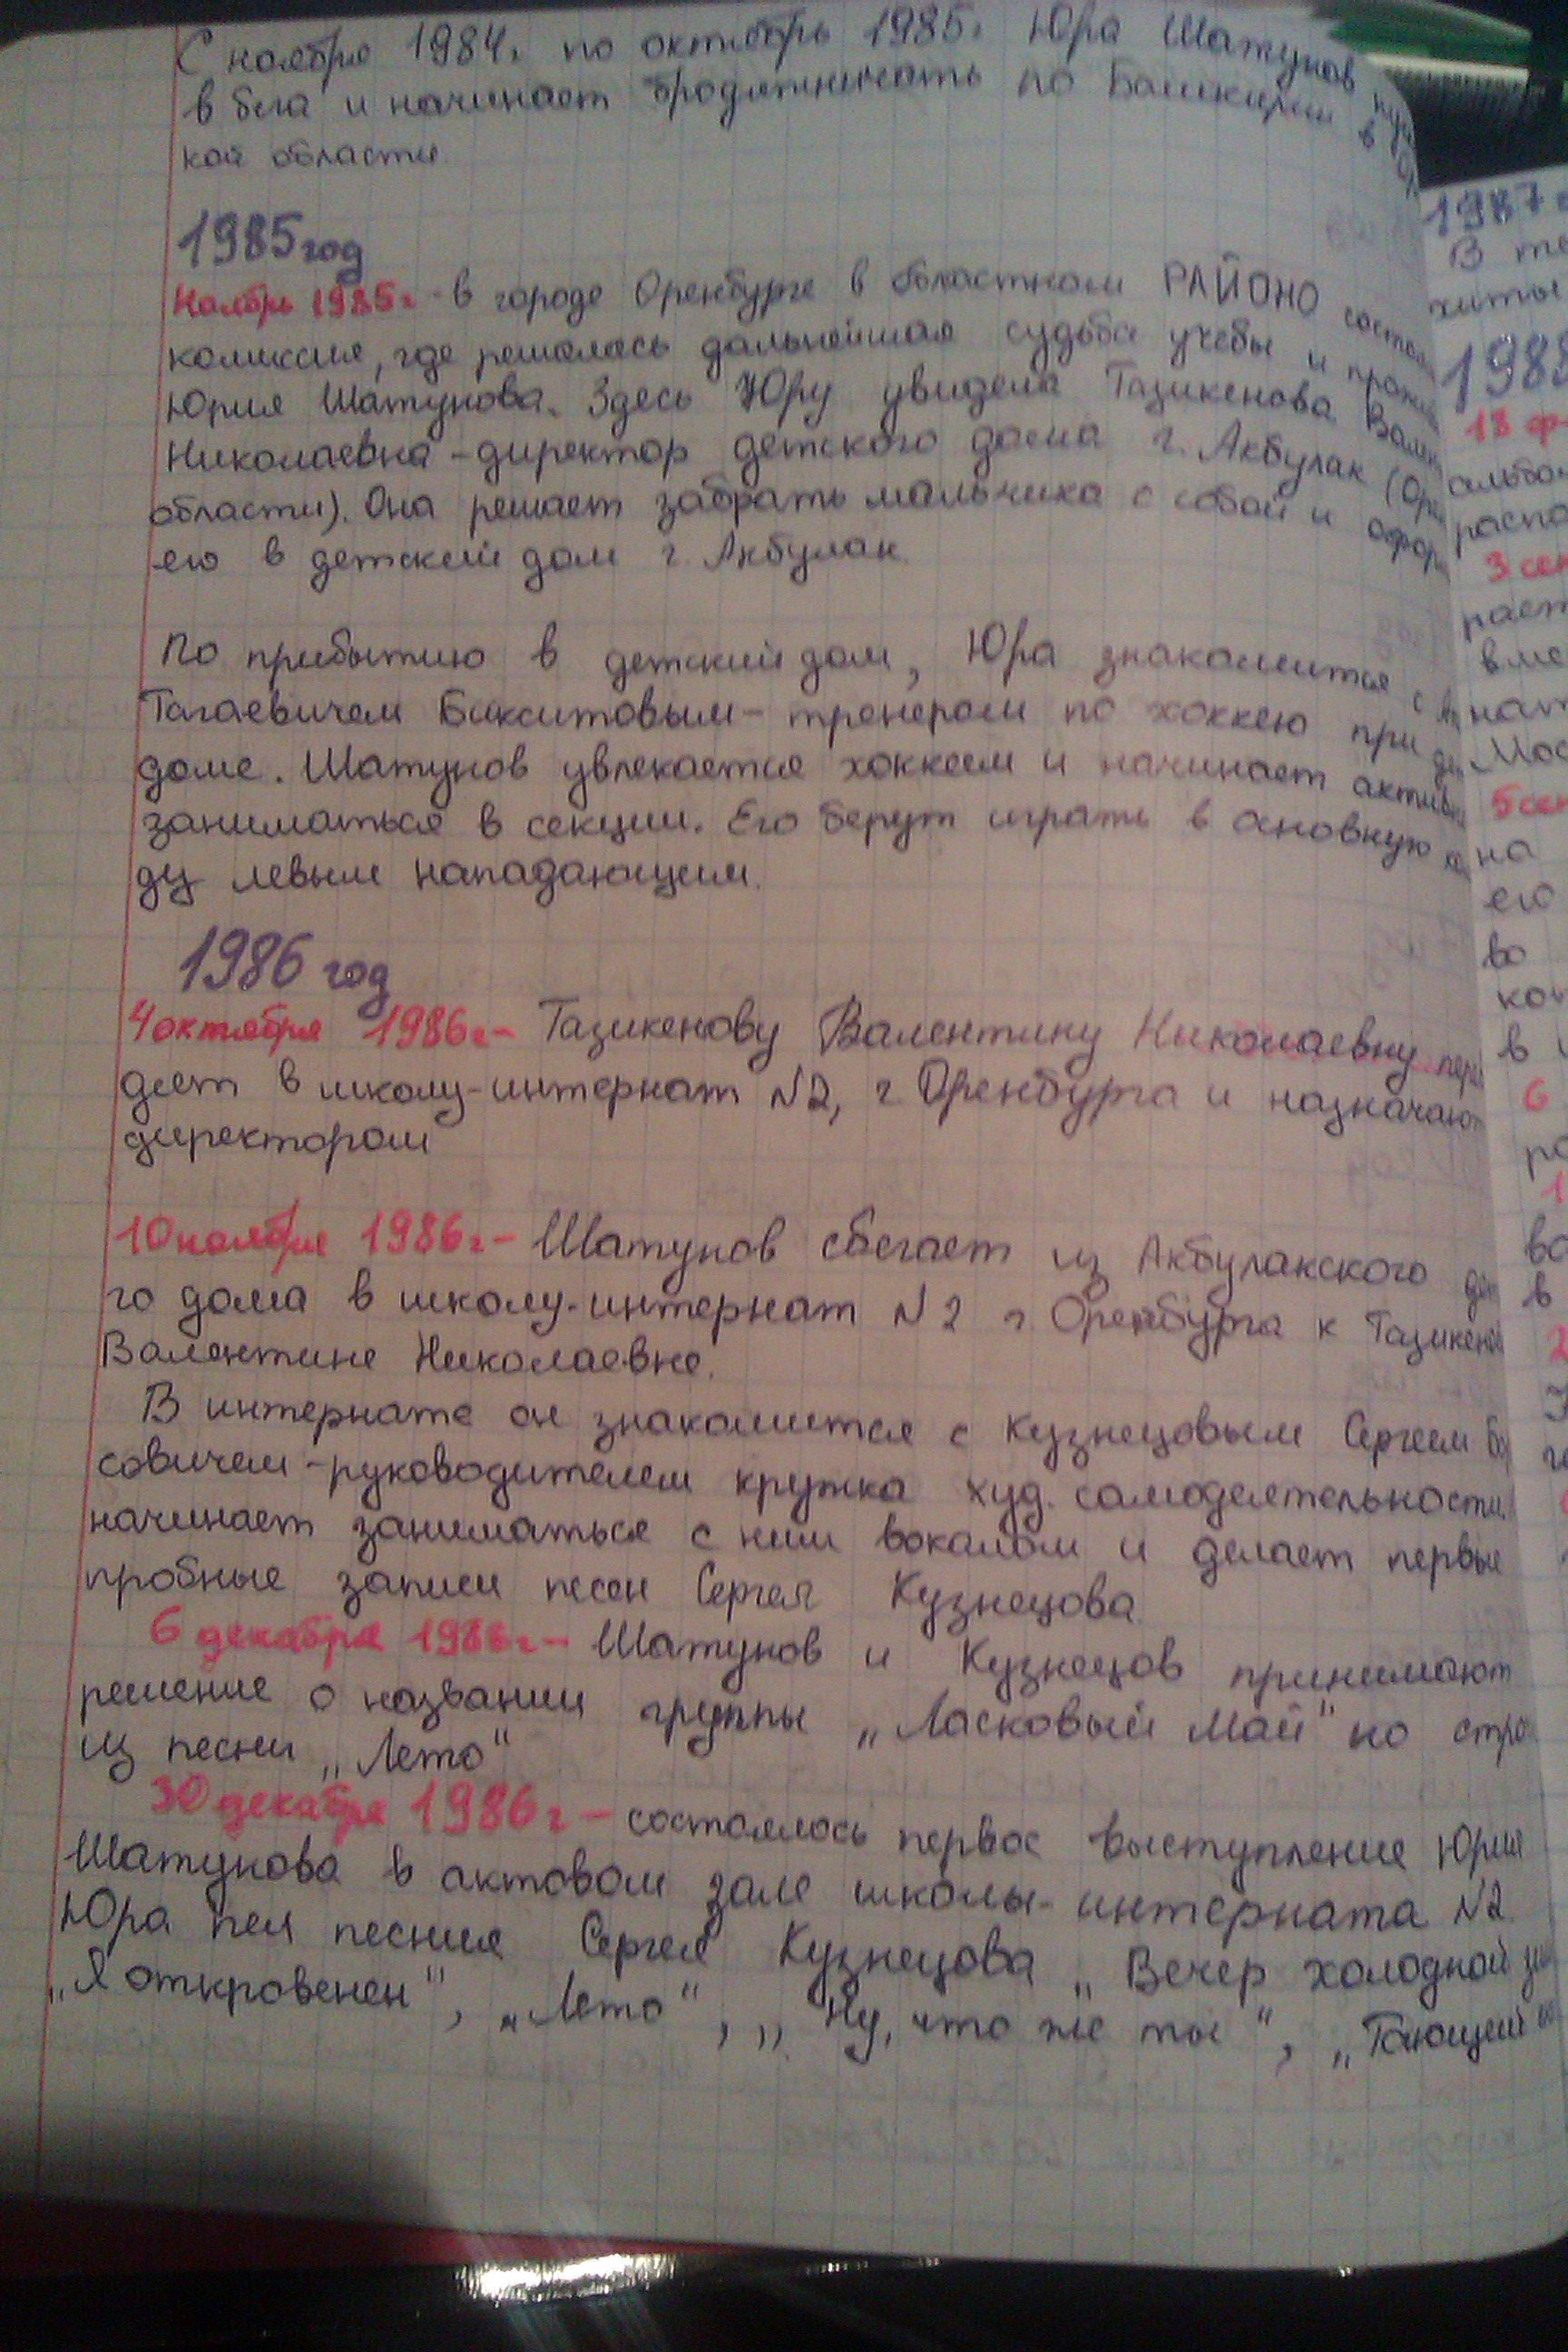 С ноября 1984г по октябрь 1985г Юра Шатунов
в бега и начинает бродяжничать по Башкирии в
кой области
1985 год
Ноябрь 1985г - в городе Оренбурге в областном РАЙОНО
комиссия, где решалась дальнейшая судьба учебы и
Юрия Шатунова. Здесь Юру увидела Тазикенова
Николаевна - директор детского дома г. Акбулак
области). Она решает забрать мальчика с собой и
его в детский дом г. Акбулак.
По прибытию в детский дом, Юра знакомится с
Тагаевичем Бикситовым - тренером по хоккею при
доме. Шатунов увлекается хоккеем и начинает
заниматься в секции. Его берут играть в ановную
ду левым нападающим.
1986 год
4 октября 1986г - Тазикенову Валентину Николаевну
дят в школу-интернат N2, г Оренбурга и назначают
директором
10 ноября 1986г - Шатунов сбегает из Акбулакского
го дома в школу-интернат N2 г Оренбурга к
Валентине Николаевне.
В интернате он знакомится с Кузнецовым Сергеем
совичем - руководителем кружка худ. самодеятельности.
начинает заниматься с ним вокалом и делает первые
пробные записи песен Сергея Кузнецова
6 декабря 1986г - Шатунов и Кузнецов принимают
решение о названии группы „Ласковый Май" по
из песни „Лето"
30 декабря 1986г - состоялось первое выступление Юрия
Шатунова в актовом зале школы-интерната N2.
Юра пел песния Сергея Кузнецова „Вечер холодной
„Я откровенен", „Лето", „Ну, что же ты", „Тающий
1987
В
хиты
198
18
3
вме
5
на
его
во
в
6
в
2